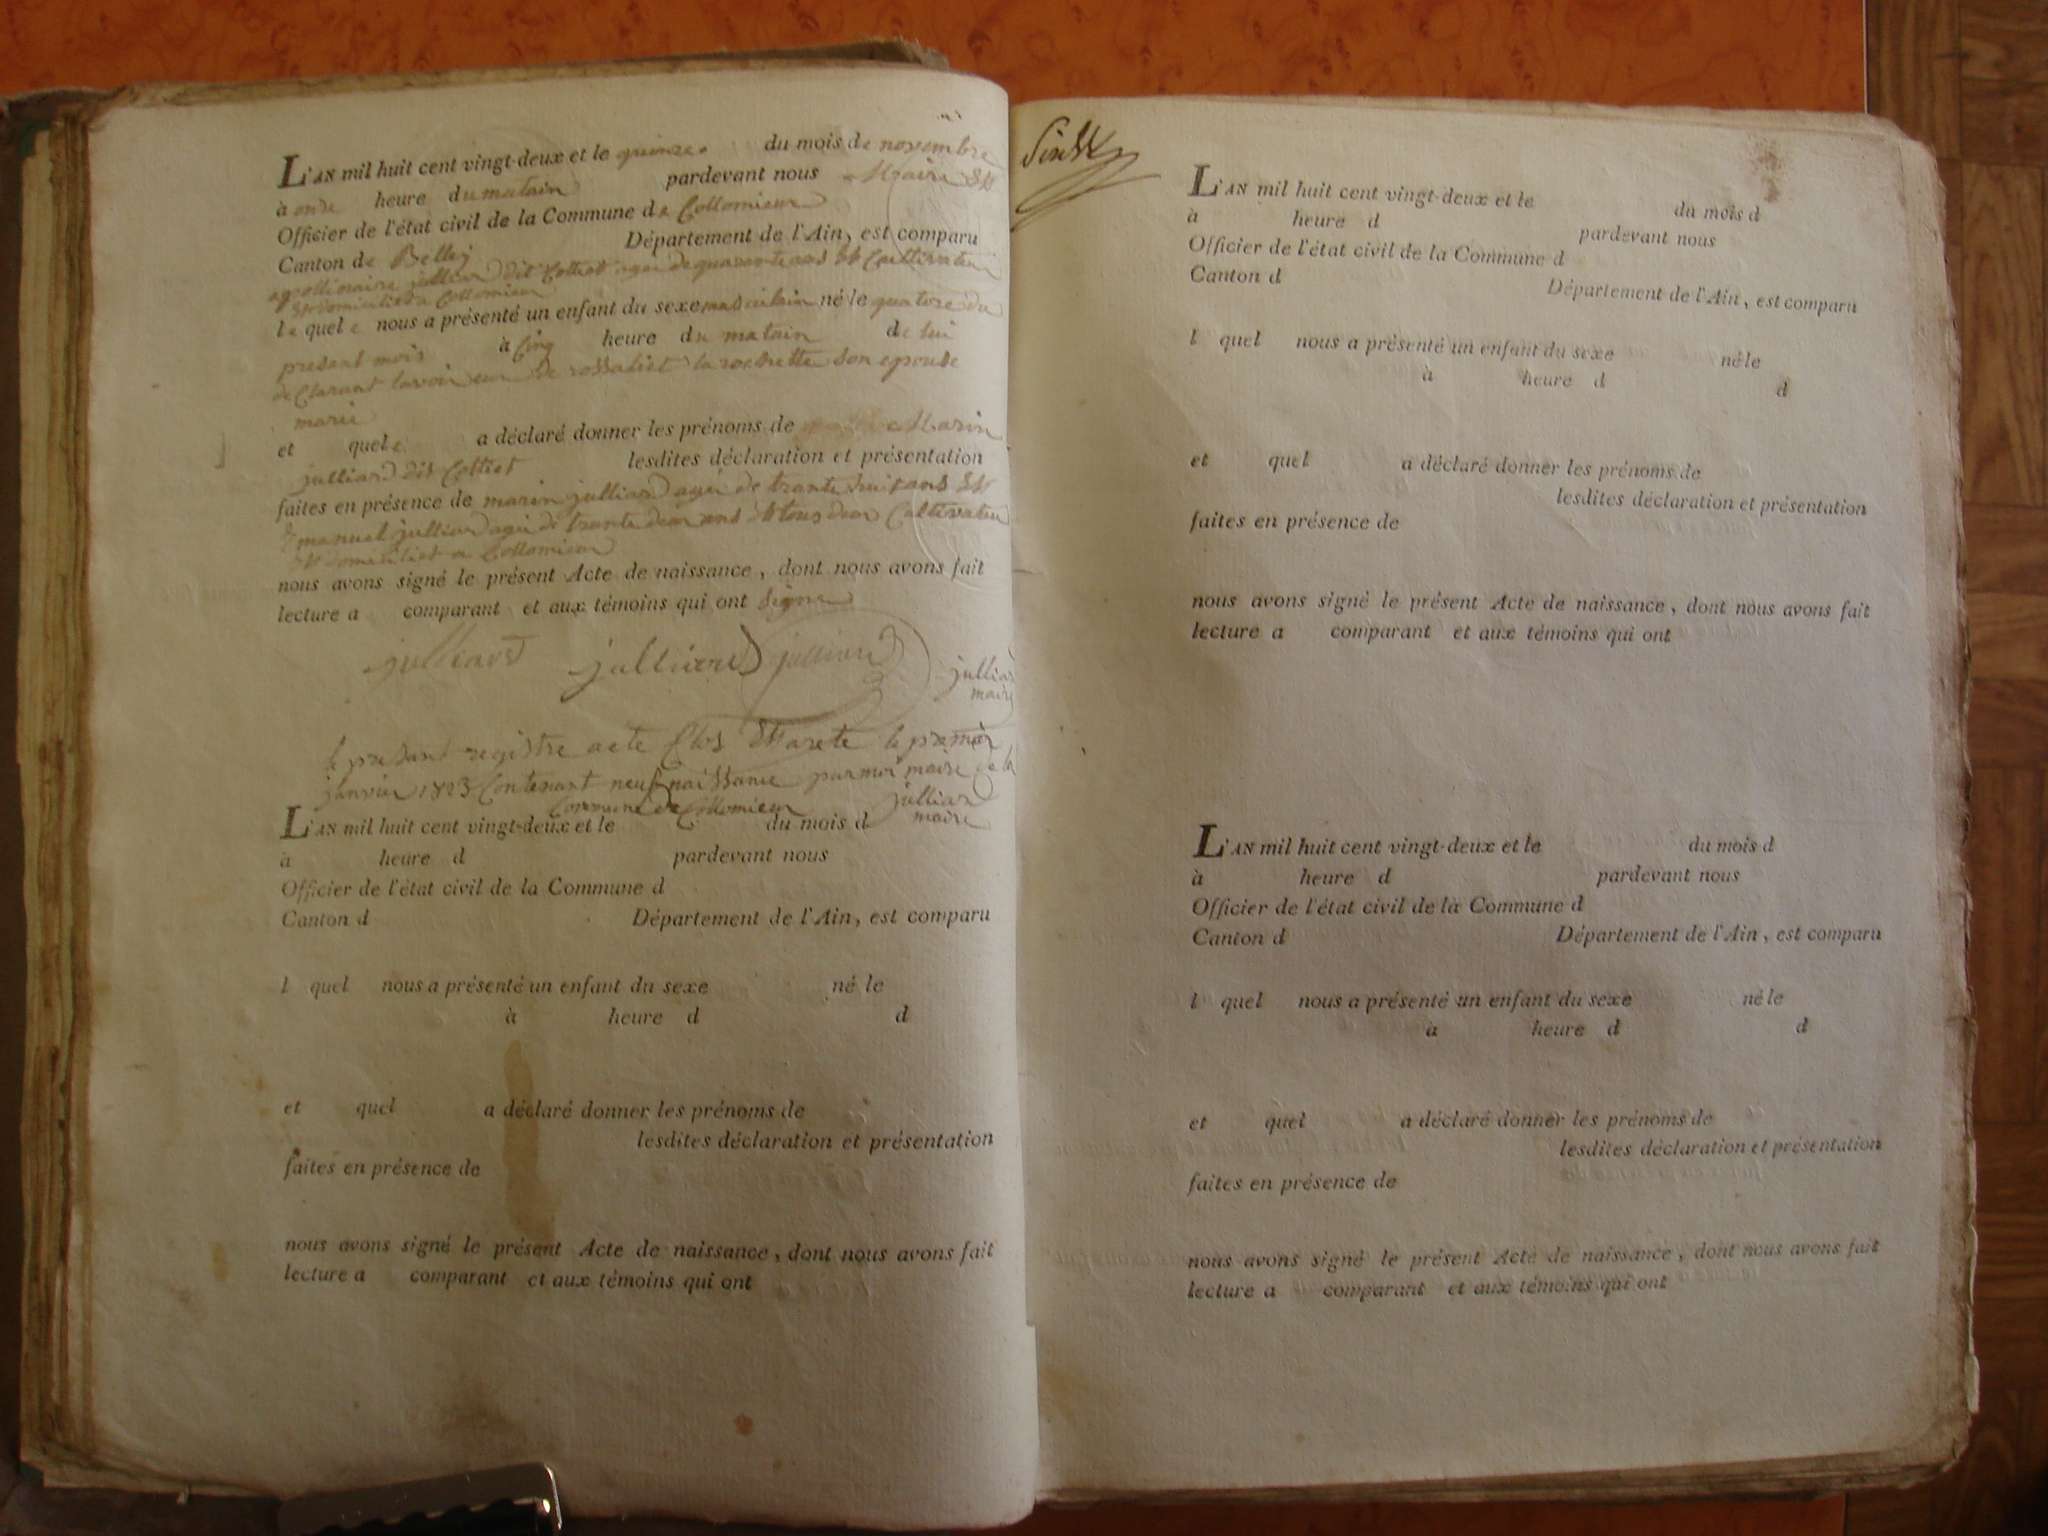 L'AN mil huit cent vingt-deux et le quinze du mois de novembre
à onde heure du matain pardevant nous Maire
Officier de l'état civil de la Commune de Collomieux
Canton de Belley Département de l'Ain, est comparu
appollinaire julliard dit Cottet agé de quarante ans Cultivateur
domicilié a Collomieux
le quel e nous a présenté un enfant du sexe masculain né le quatore du
presant mois à Cinq heure du matain de lui
declarant lavoir eue de la rochette son epouse
marie
et quel e a déclaré donner les prénoms de Marin
julliard dit Cottet lesdites déclaration et présentation
faites en présence de marin julliard agé de trante huit ans
Emanuel julliard agé de trante deux ans tous deux Cultivateur
domicilié a Collomieux
nous avons signé le présent Acte de naissance, dont nous avons fait
lecture a comparant et aux témoins qui ont signé
julliard julliard julliard julliard
maire
le presant registre acte Clos areté le premier
janvier 1823 Contenant neuf naissance par moi maire de la
Commune de Collomieux julliard
maire
L'AN mil huit cent vingt-deux et le du mois d
à heure d pardevant nous
Officier de l'état civil de la Commune d
Canton d Département de l'Ain, est comparu
l quel nous a présenté un enfant du sexe né le
à heure d d
et quel a déclaré donner les prénoms de
lesdites déclaration et présentation
faites en présence de
nous avons signé le présent Acte de naissance, dont nous avons fait
lecture a comparant et aux témoins qui ont
L'AN mil huit cent vingt-deux et le du mois d
à heure d pardevant nous
Officier de l'état civil de la Commune d
Canton d Département de l'Ain, est comparu
l quel nous a présenté un enfant du sexe né le
à heure d d
et quel a déclaré donner les prénoms de
lesdites déclaration et présentation
faites en présence de
nous avons signé le présent Acte de naissance, dont nous avons fait
lecture a comparant et aux témoins qui ont
L'AN mil huit cent vingt-deux et le du mois d
à heure d pardevant nous
Officier de l'état civil de la Commune d
Canton d Département de l'Ain, est comparu
l quel nous a présenté un enfant du sexe né le
à heure d d
et quel a déclaré donner les prénoms de
lesdites déclaration et présentation
faites en présence de
nous avons signé le présent Acte de naissance, dont nous avons fait
lecture a comparant et aux témoins qui ont